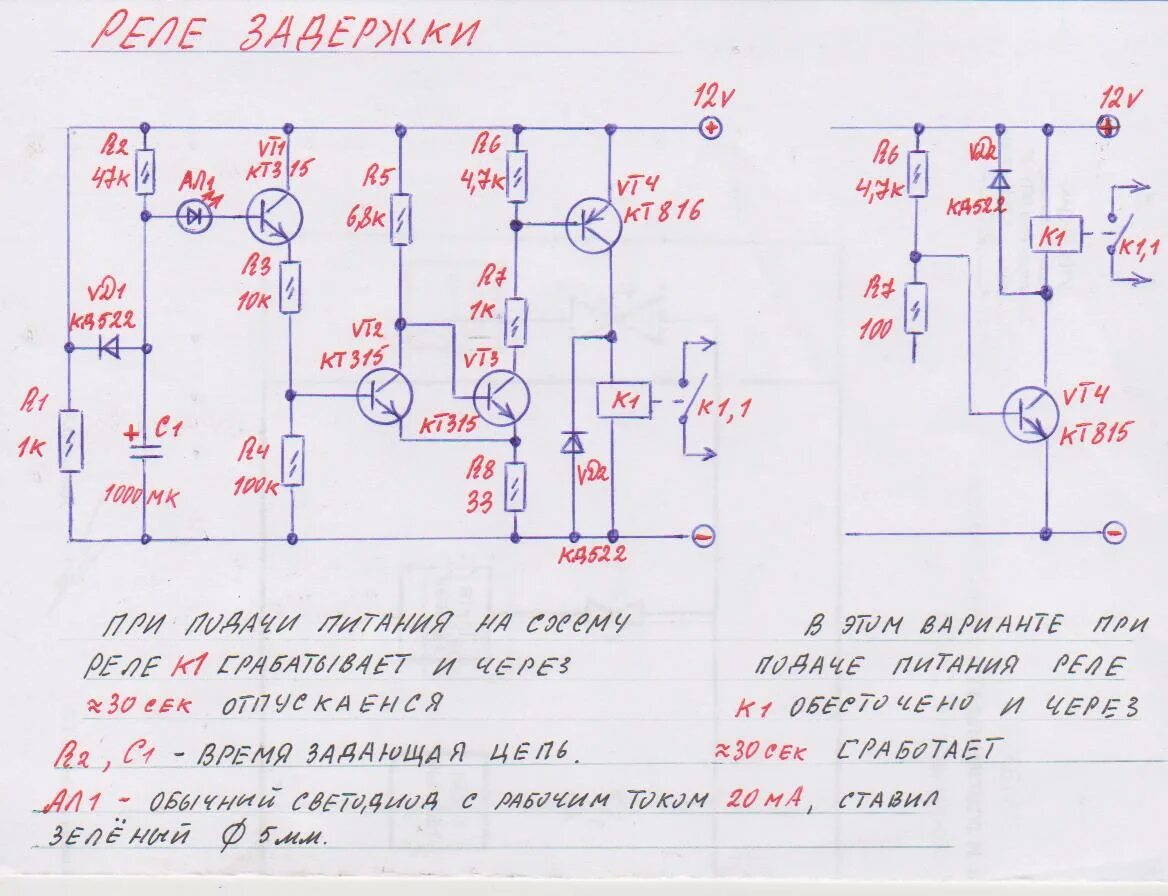 РЕЛЕ ЗАДЕРЖКИ
12V
R2
47К
АЛ1
VT1
КТ315
R5
6,8К
R6
4,7К
VT4
КТ816
R3
10К
VD1
КД522
VT2
КТ315
R7
1К
VT3
КТ315
R1
1К
+ С1
1000МК
R4
100К
R8
33
VD2
КД522
К1
К1,1
12V
R6
4,7К
VD2
КД522
К1
К1,1
R7
100
VT4
КТ815
ПРИ ПОДАЧИ ПИТАНИЯ НА СХЕМУ
РЕЛЕ К1 СРАБАТЫВАЕТ И ЧЕРЕЗ
≈30 СЕК ОТПУСКАЕНСЯ
R2, С1 - ВРЕМЯ ЗАДАЮЩАЯ ЦЕПЬ.
В ЭТОМ ВАРИАНТЕ ПРИ
ПОДАЧЕ ПИТАНИЯ РЕЛЕ
К1 ОБЕСТОЧЕНО И ЧЕРЕЗ
≈30 СЕК СРАБОТАЕТ
АЛ1 - ОБЫЧНИЙ СВЕТОДИОД С РАБОЧИМ ТОКОМ 20 МА, СТАВИЛ
ЗЕЛЁНЫЙ Ø 5 мм.